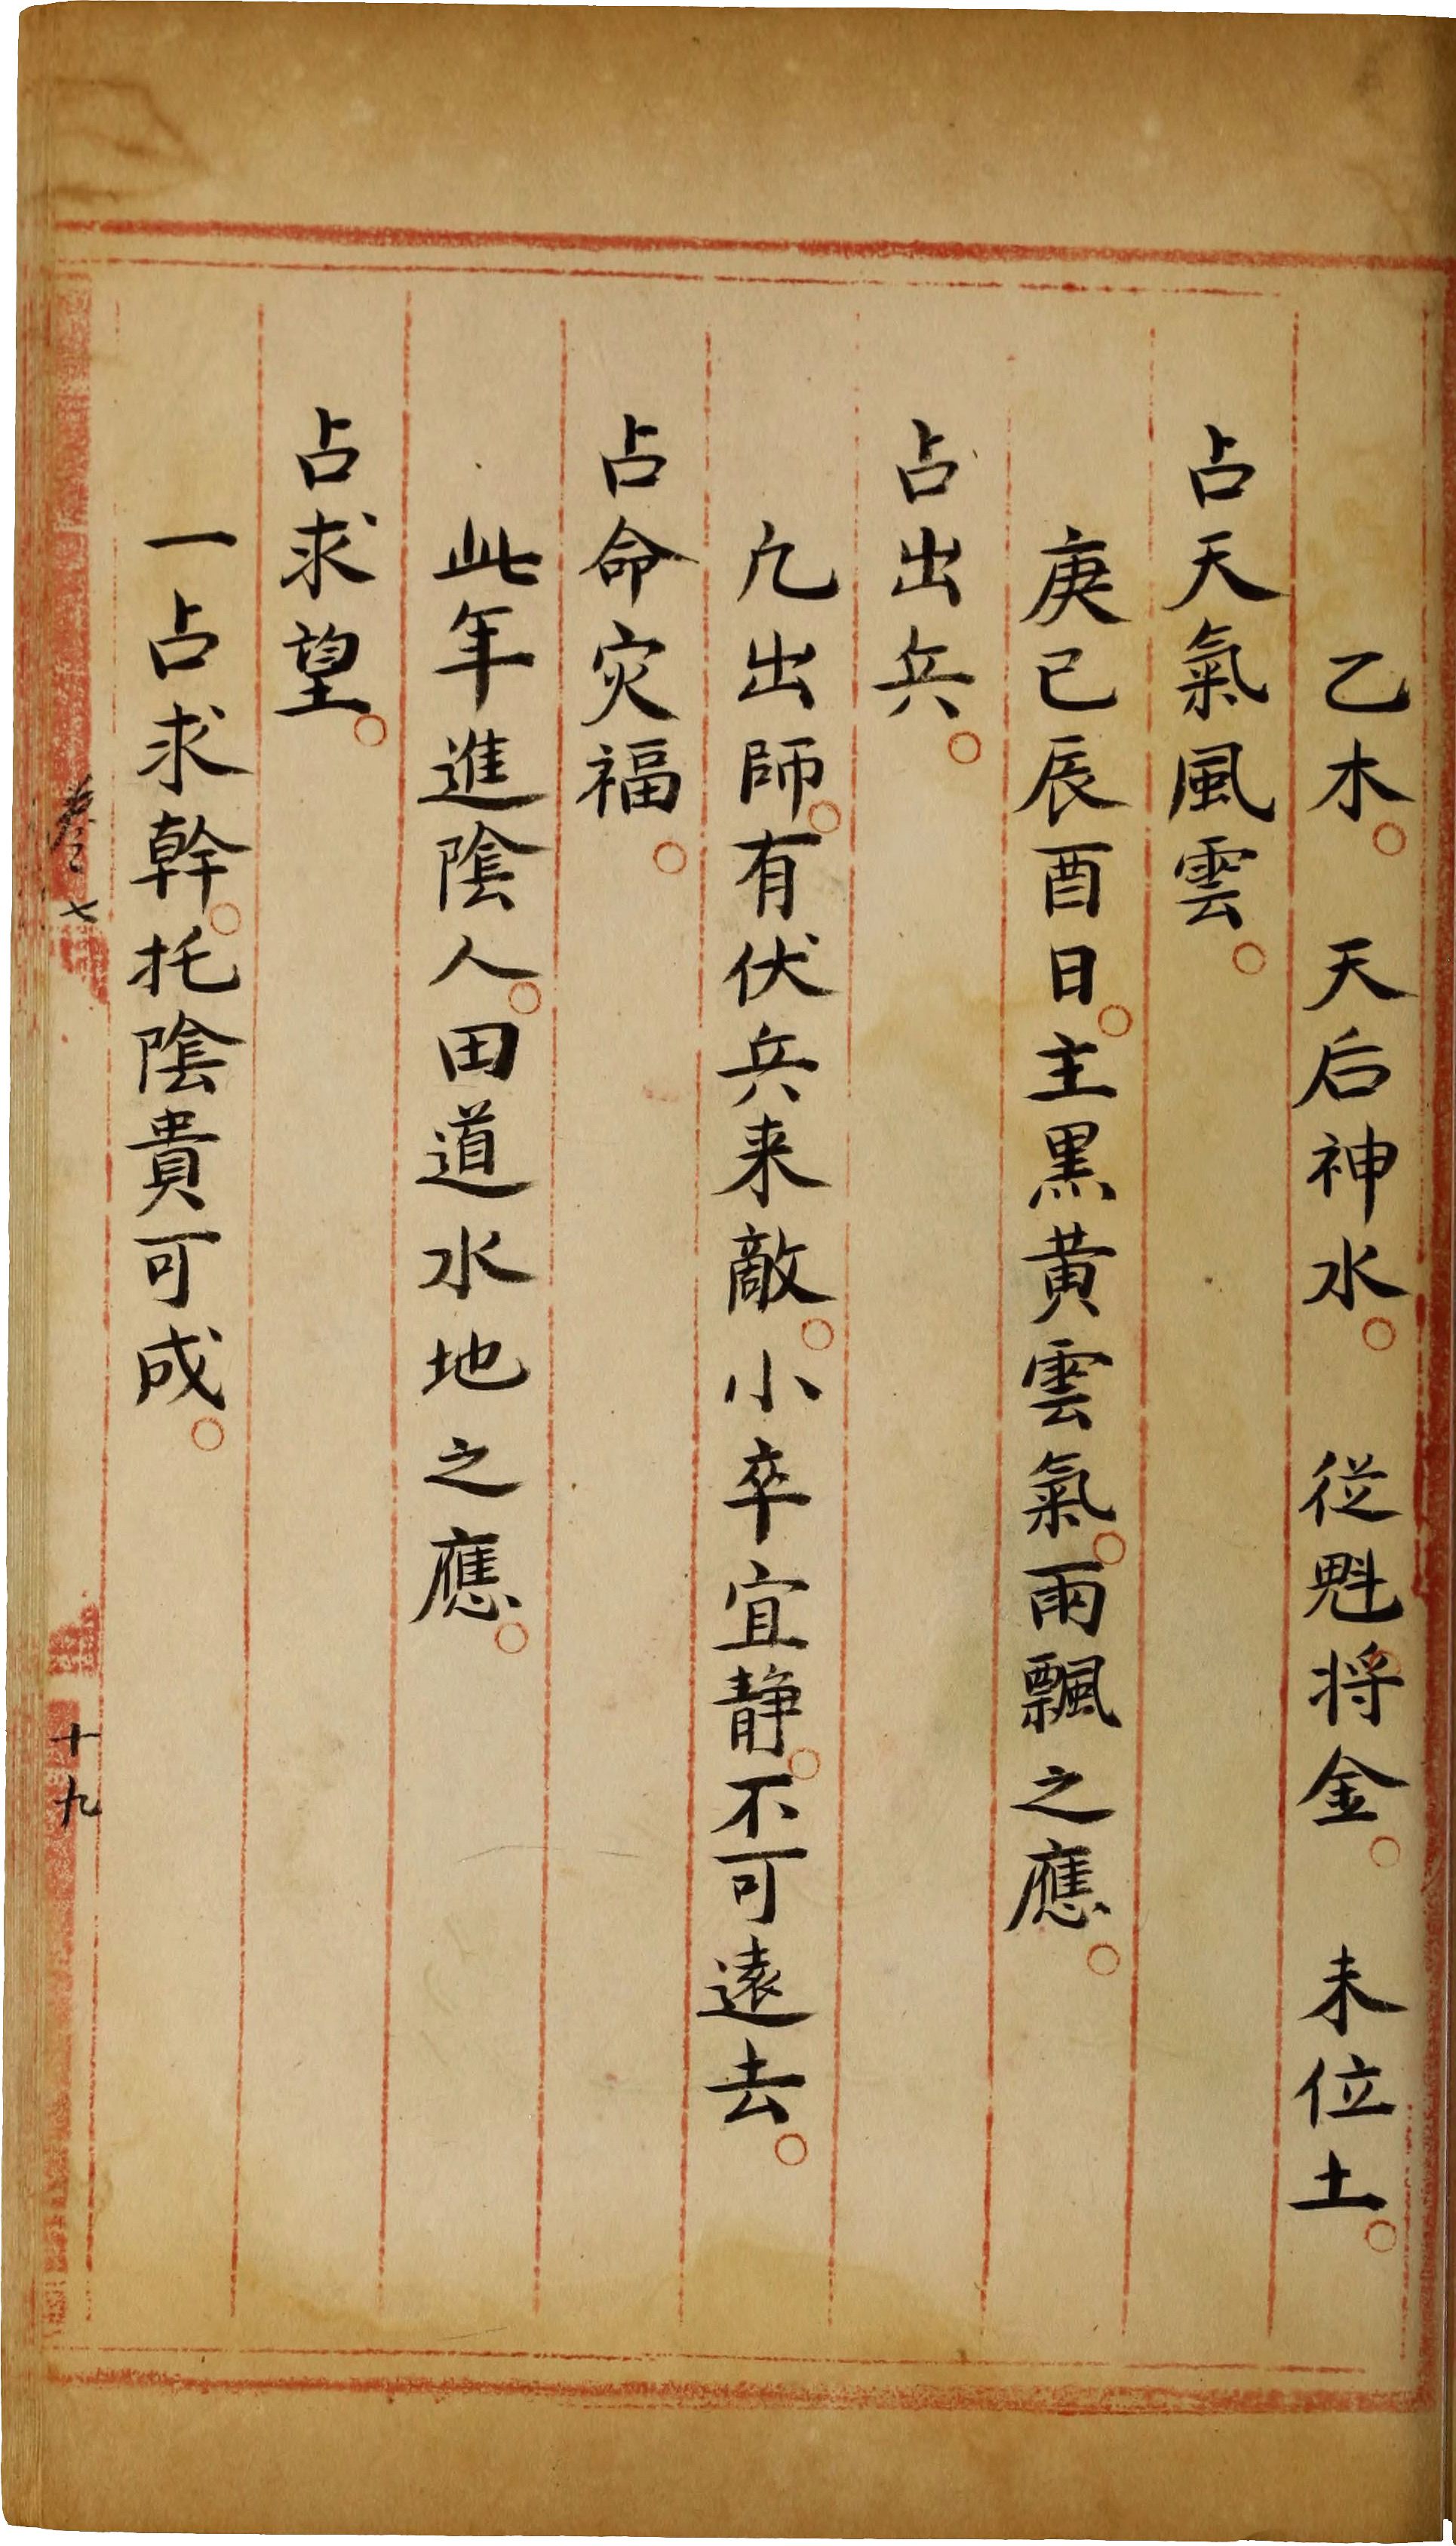 乙木。　天后神水。　従魁将金。　未位土。
占天氣風雲。
庚己辰酉日。主黒黄雲氣。雨飄之應。
占出兵。
凢出師。有伏兵来敵。小卒宜静。不可遠去。
占命灾福。
此年進陰人。田道水地之應。
占求望。
一占求幹。托陰貴可成。
卷之七
十九